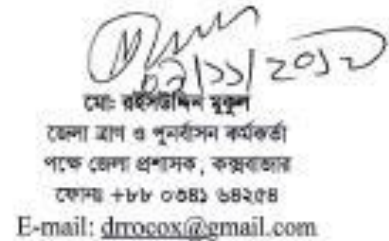 ০৭/১১/২০১২
মোঃ রইসউদ্দিন মুকুল
জেলা ত্রাণ ও পুনর্বাসন কর্মকর্তা
পক্ষে জেলা প্রশাসক, কক্সবাজার
ফোনঃ +৮৮ ০৩৪১ ৬৪২৫৪
E-mail: drrocox@gmail.com